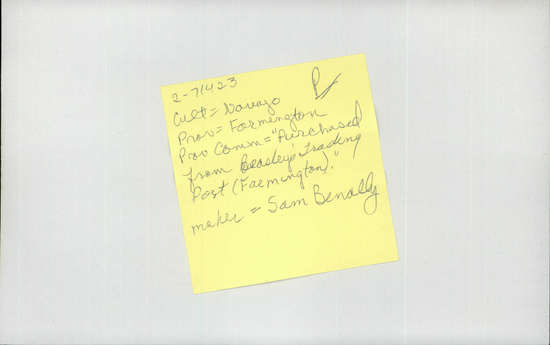 2-71423
P✓
Cult = Navajo
Prov = Farmington
Prov Comm = "Purchased
from Beasley's Trading
Post (Farmington)."
maker = Sam Benally